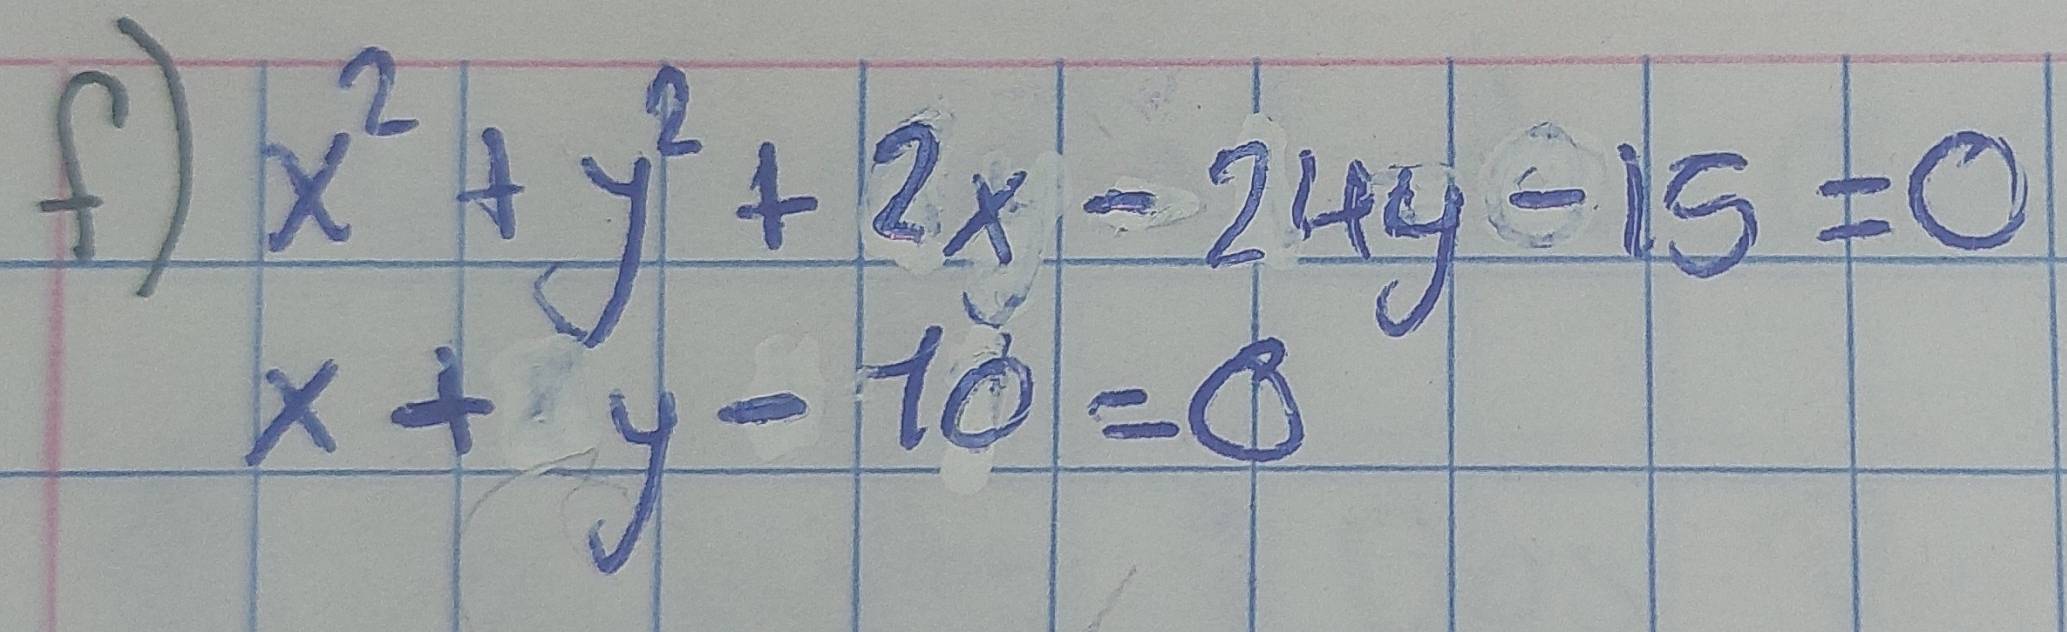 f) x² + y² + 2x - 24y - 15 = 0
x + y - 10 = 0